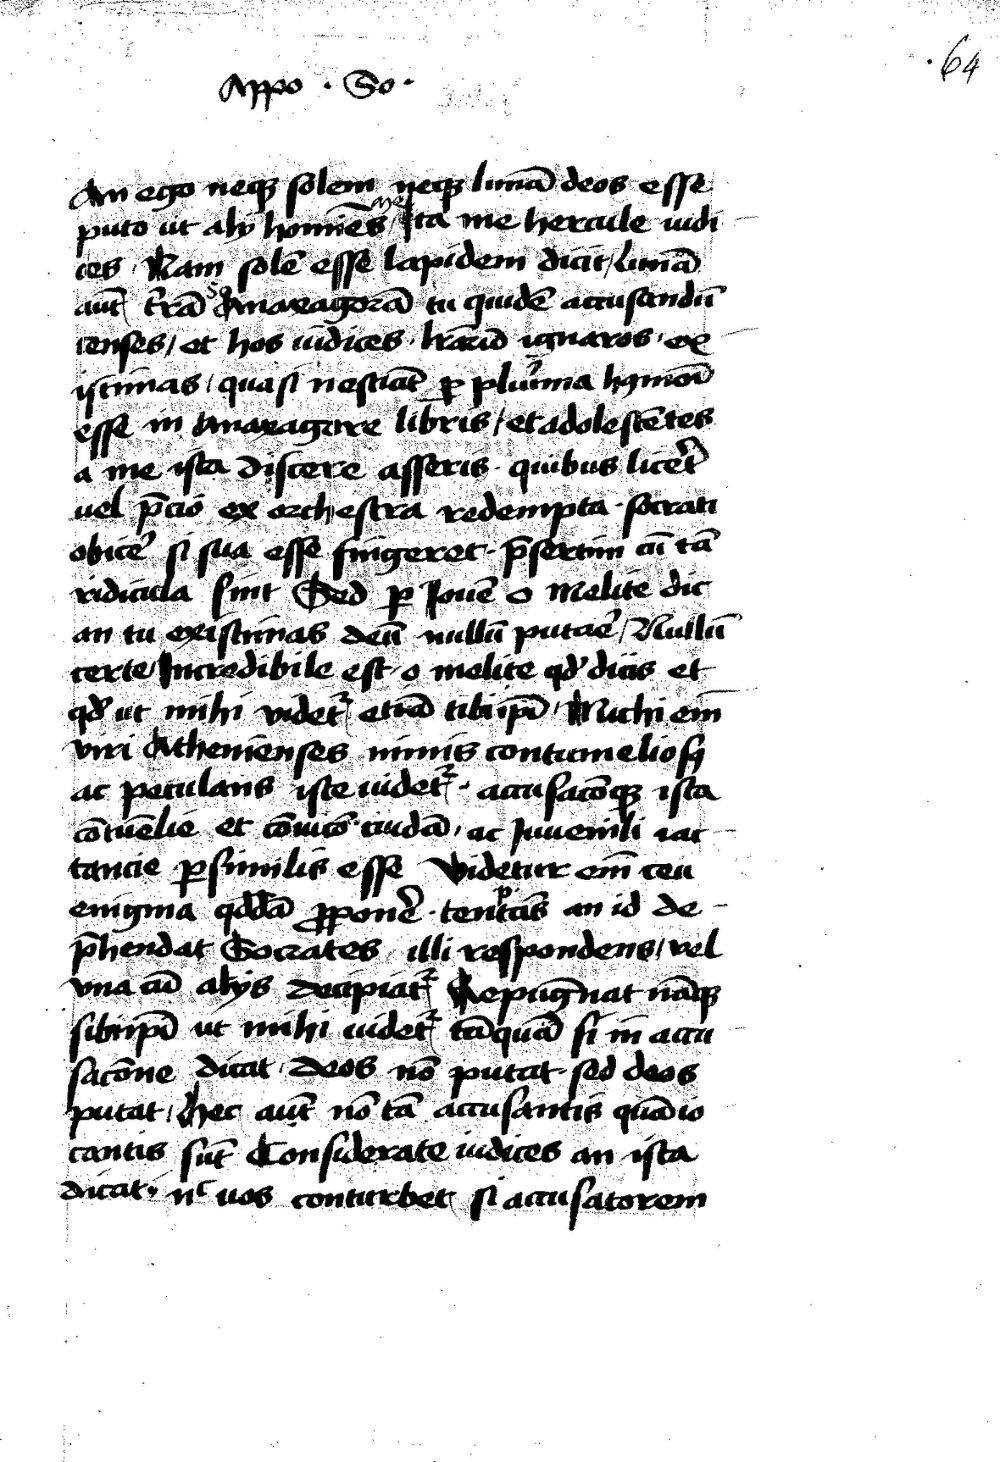 .64
Appo . So .
An ego neq₃ solem neq₃ lunā deos esse
puto ut alij homīes me Ita me hercule iudi
ces . Nam solē esse lapidem dicit / lunā
aut̄ t̄rā so Anaxagorā tu quidē accusandū
censes / et hos iudices . lr̄arū ignaros . ex
istimas / quasi nesciāt ꝑ plurīma hꝰmōi
esse in Anaxagore libris / et adolescētes
a me ista discere asseris . quibus licer̄t
uel p̄cio ex orchestra redempta . socrati
obicer̄ si sua esse fingeret . p̄sertim cū tā
ridicula sint Sed ꝑ Iouē o Melite dic
an tu existimas deū nullū putar̄e / Nullū
certe / Incredibile est . o melite qđ dicis et
qđ ut mihi videt᷑ etiā tibiipī / Michi em̄
viri Athenienses nimis contumeliosꝰ
ac petulans iste uidet᷑ . accusacōq₃ ista
cōtuēlie et cōuicō cuidā . ac Iuuenili iac
tancie ꝑsimilis esse Videtur em̄ ceu
enigma qđdā ꝓponer̄ . temptās an id de
p̄hendat Socrates . illi respondens / vel
vna cū alijs decipiat᷑ Repugnat nāq₃
sibiipī ut mihi uidet᷑ tāquā si in accu
sacōne dicat . deos nō putat . sed deos
putat / Hec aut̄ nō tā accusantis quā io
cantis sūt Considerate iudices an ista
dicat . nᶜ uos conturbet si accusatorem